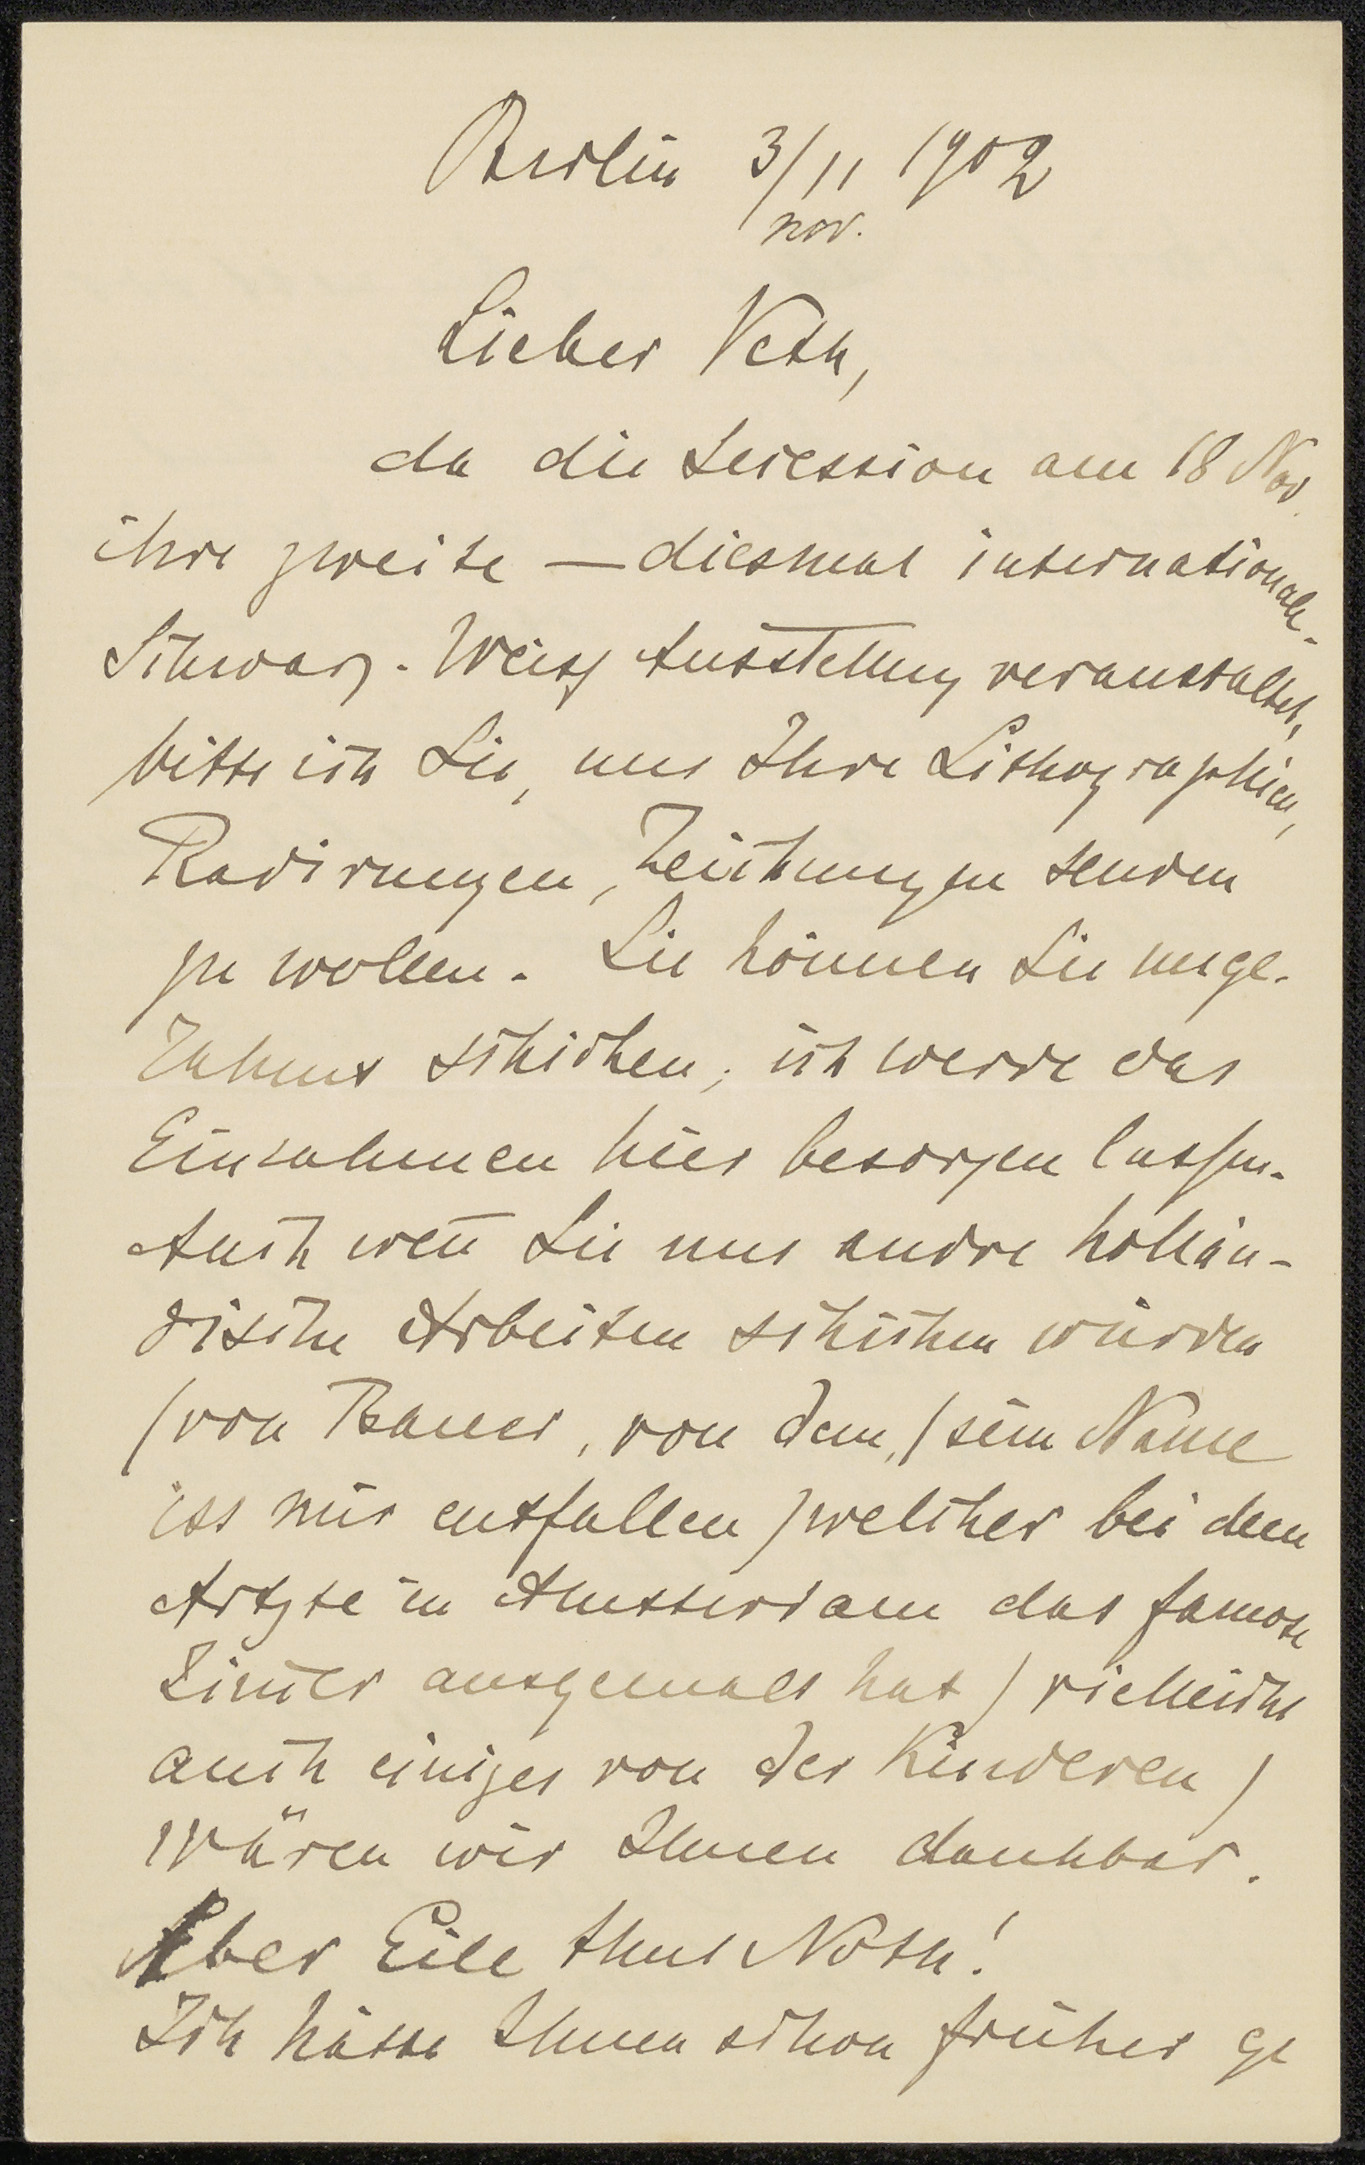 Berlin 3/11 1902
nov.
Lieber Veth,
da die Secession am 18 Nov.
ihre zweite — diesmal internationale -
Schwarz-Weiss Ausstellung veranstaltet,
bitte ich Sie, uns Ihre Lithographien,
Radirungen, Zeichnungen senden
zu wollen. Sie können Sie unge-
rahmt schicken, ich werde das
Einrahmen hier besorgen lassen.
Auch weñ Sie uns andre hollän-
dische Arbeiten schicken würden
(von Bauer, von dem, (sein Name
ist mir entfallen) welcher bei dem
Artzte in Amsterdam das famose
Zim̃er ausgemalt hat) vielleicht
auch einiges von der Kinderen)
wären wir Ihnen dankbar.
Aber Eile thut Noth!
Ich hätte Ihnen schon früher ge